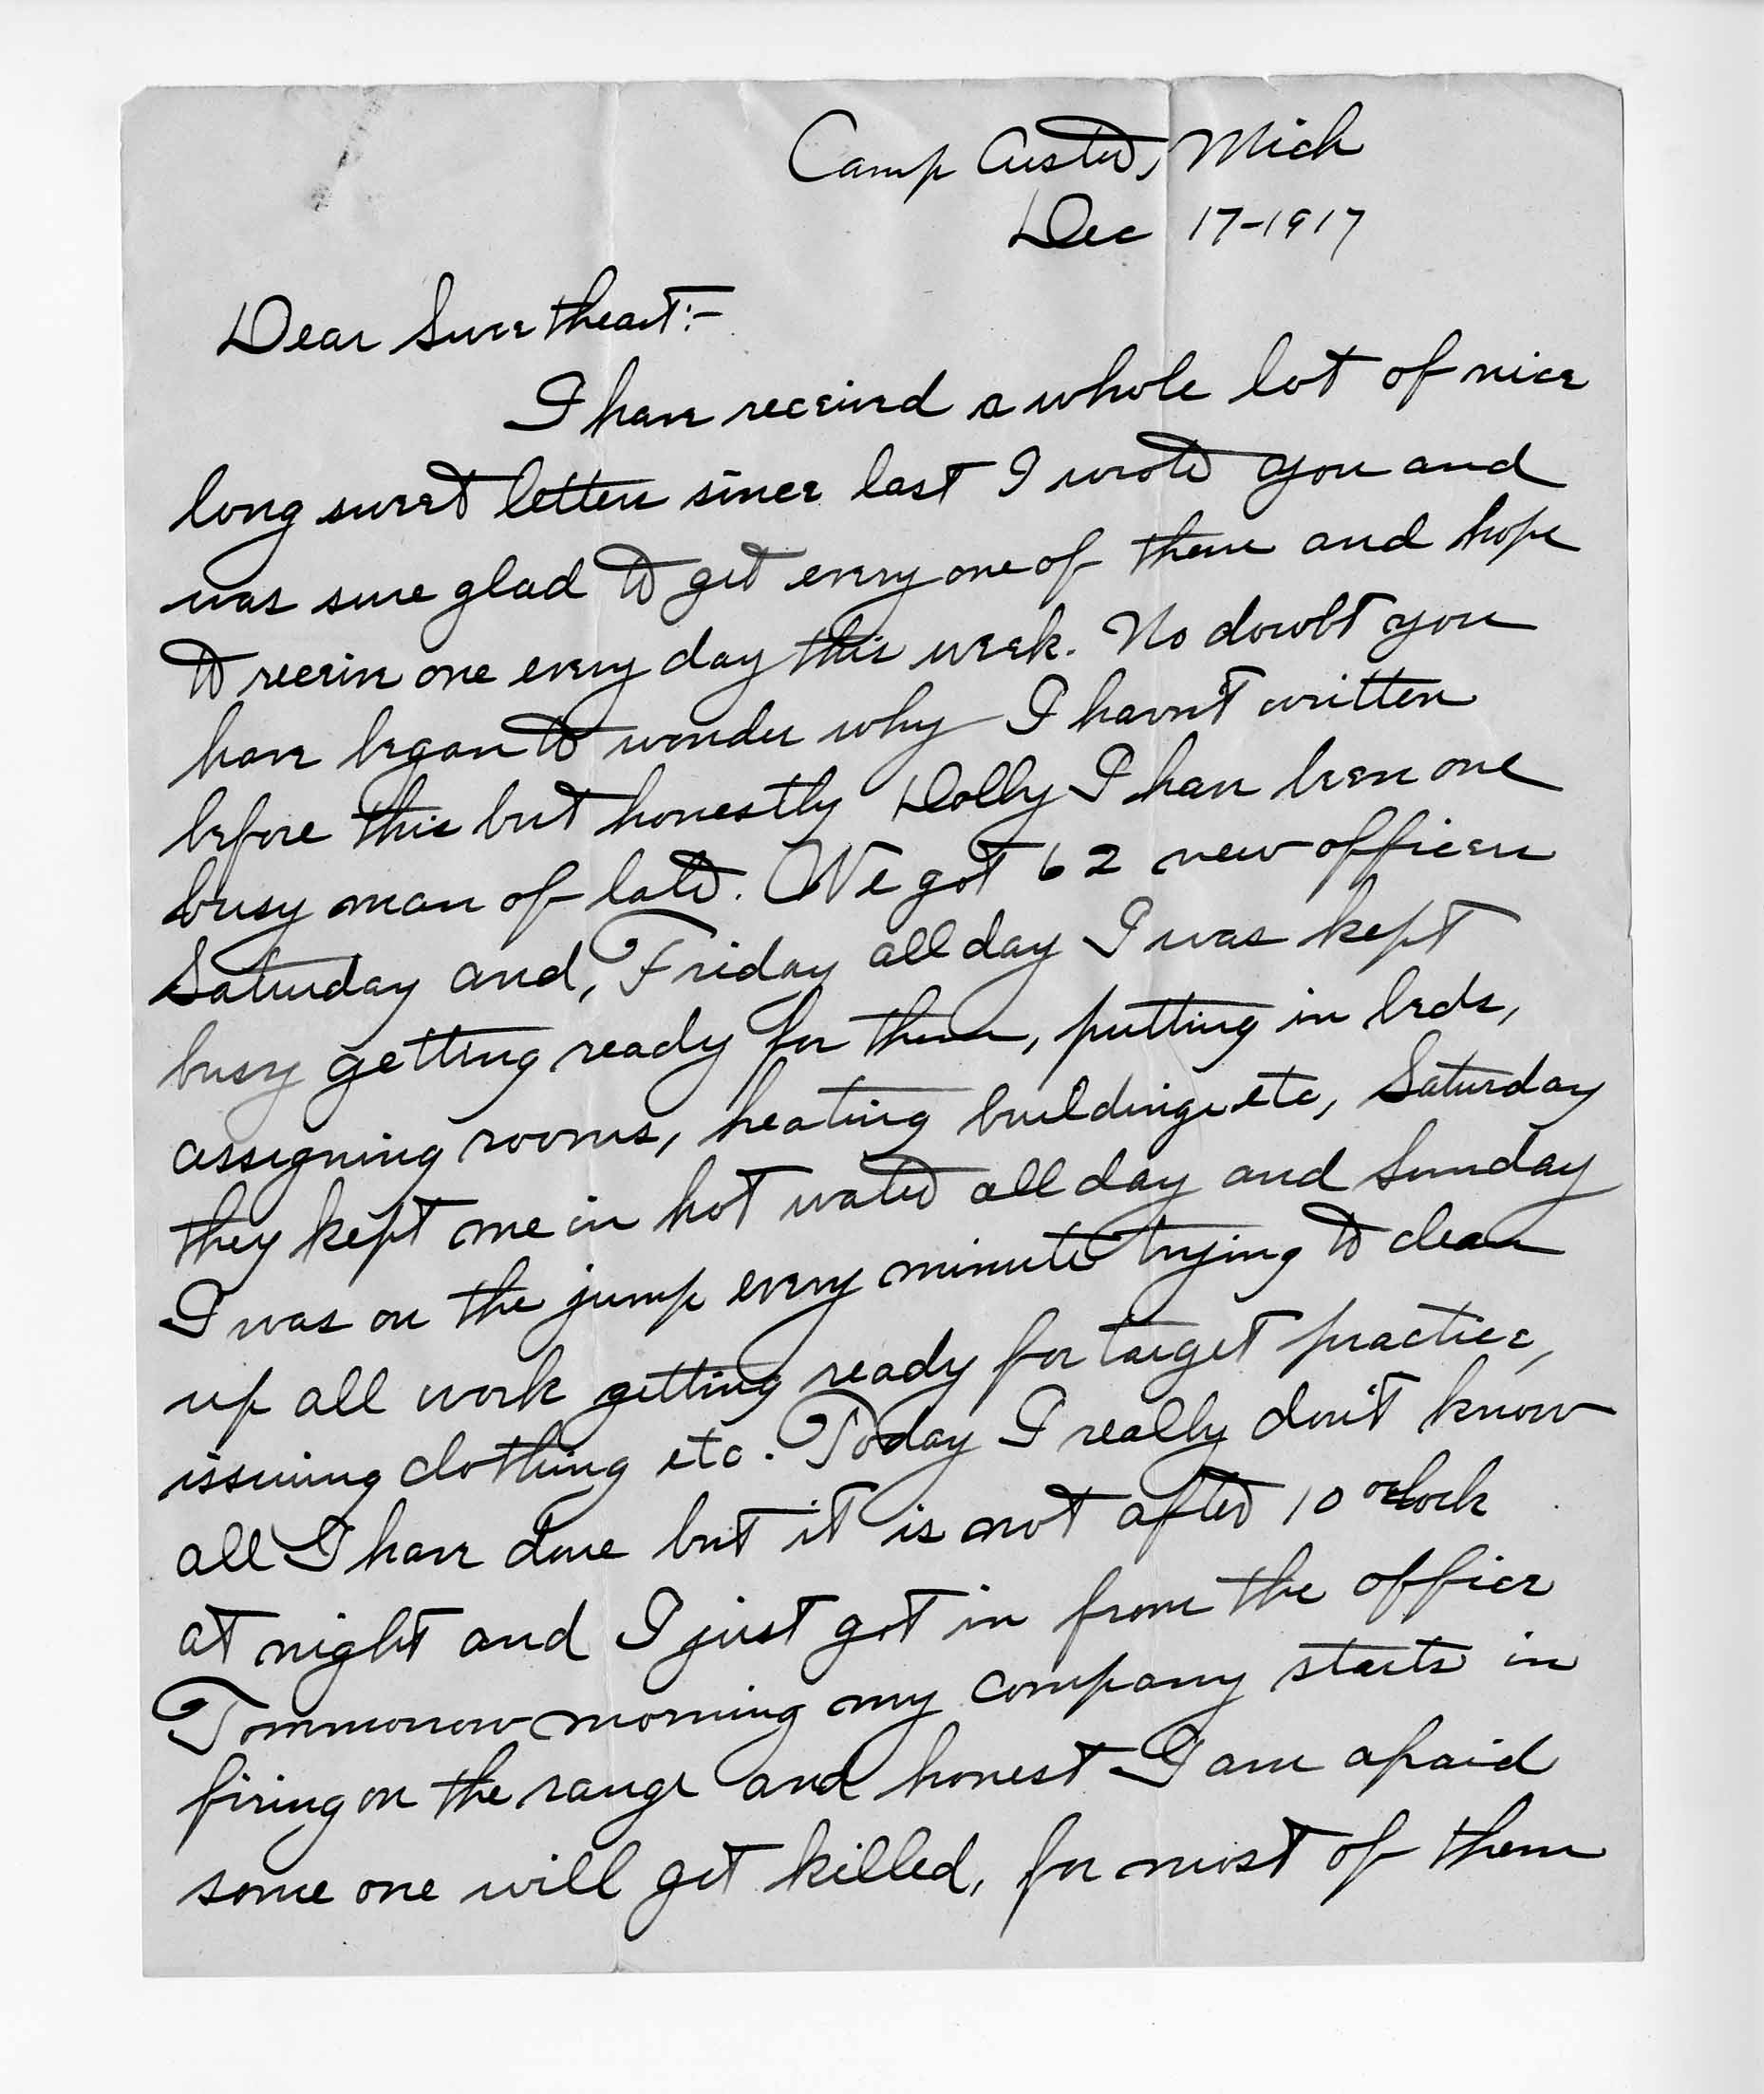 Camp Custer, Mich
Dec 17-1917
Dear Sweetheart:-
I have received a whole lot of nice
long sweet letters since last I wrote you and
was sure glad to get every one of them and hope
to receive one every day this week. No doubt you
have began to wonder why I havn't written
before this but honestly Dolly I have been one
busy man of late. We got 62 new officers
Saturday and, Friday all day I was kept
busy getting ready for them, putting in beds,
assigning rooms, heating buildings etc, Saturday
they kept me in hot water all day and Sunday
I was on the jump every minute trying to clean
up all work getting ready for target practice,
issuing clothing etc. Today I really don't know
all I have done but it is not after 10 oclock
at night and I just got in from the office
Tommorow morning my company starts in
firing on the range and honest I am afraid
some one will get killed, for most of them